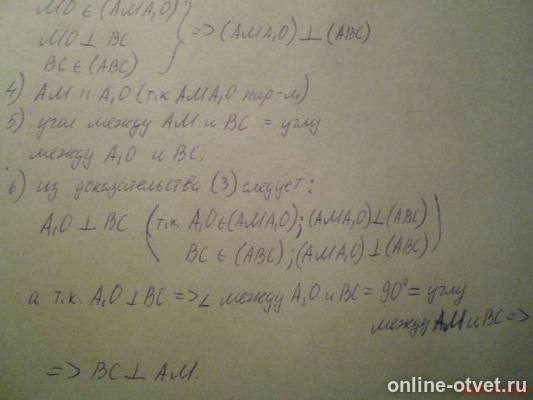 MO ∈ (AMA₁O)
MO ⊥ BC } => (AMA₁O) ⊥ (ABC)
BC ∈ (ABC)
4) AM || A₁O (т.к AMA₁O пар-м)
5) угол между AM и BC = углу
между A₁O и BC.
6) из доказательства (3) следует:
A₁O ⊥ BC (т.к. A₁O ∈ (AMA₁O); (AMA₁O) ⊥ (ABC)
BC ∈ (ABC); (AMA₁O) ⊥ (ABC))
а т.к. A₁O ⊥ BC => ∠ между A₁O и BC = 90° = углу
между AM и BC =>
=> BC ⊥ AM.
online-otvet.ru